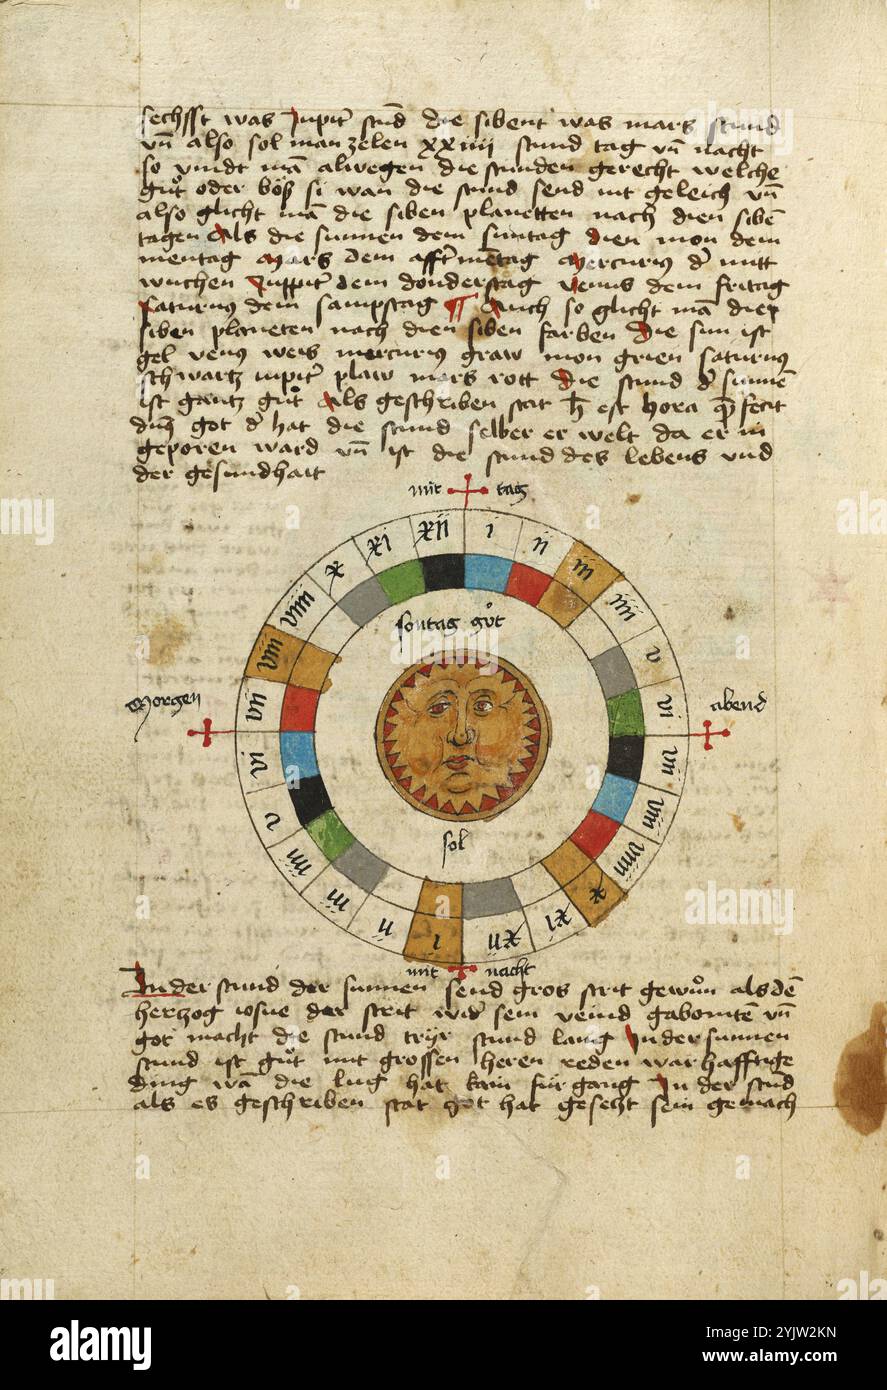 sechsst was Jupiter stund die sibent was mars stund
vn̄ also sol man zelen xxiiii stund tag vn̄ nacht
so vindt mā alwegen die stunden gerecht welche
gůt oder bös si wan die stund send nit geleich vn̄
also glicht mā die siben planetten nach dien sibē
tagen Als die sunnen dem suntag dien mon dem
mentag Mars dem afftr̄mētag Mercurius dr̄ mitt
wuchen Juppiter dem donderstag venus dem fritag
Saturnus dem sampstag ¶ Auch so glicht mā die
siben planeten nach dien siben farben Die sun ist
gel venus weis mercurius graw mon grien saturnus
schwartz iupiter plaw mars rott Die stund dr̄ sunnē
ist gantz gůt Als geschriben stat h est hora
got dr̄ hat die stund selber er welt da er in
geporen ward vn̄ ist die stund des lebens vnd
der gesundhait
mit tag
xii i
xi ii
x iii
viiii iiii
viii v
vii vi
Morgen abend
vi vii
v viii
iiii viiii
iii x
ii xi
i xii
sontag gůt
sol
mit nacht
In der stund der sunnen send gros strit gewůn als dē
herzog iosue der strit widr̄ sein veind gabonitē vn̄
got macht die stund stund lang In der sunnen
stund ist gůt mit grossen heren reden warhafftige
ding wā die lug hat kain für gang In der stūd
als es geschriben stat got hat gesetzt sein gemach
alamy
Image ID: 2YJW2KN
www.alamy.com